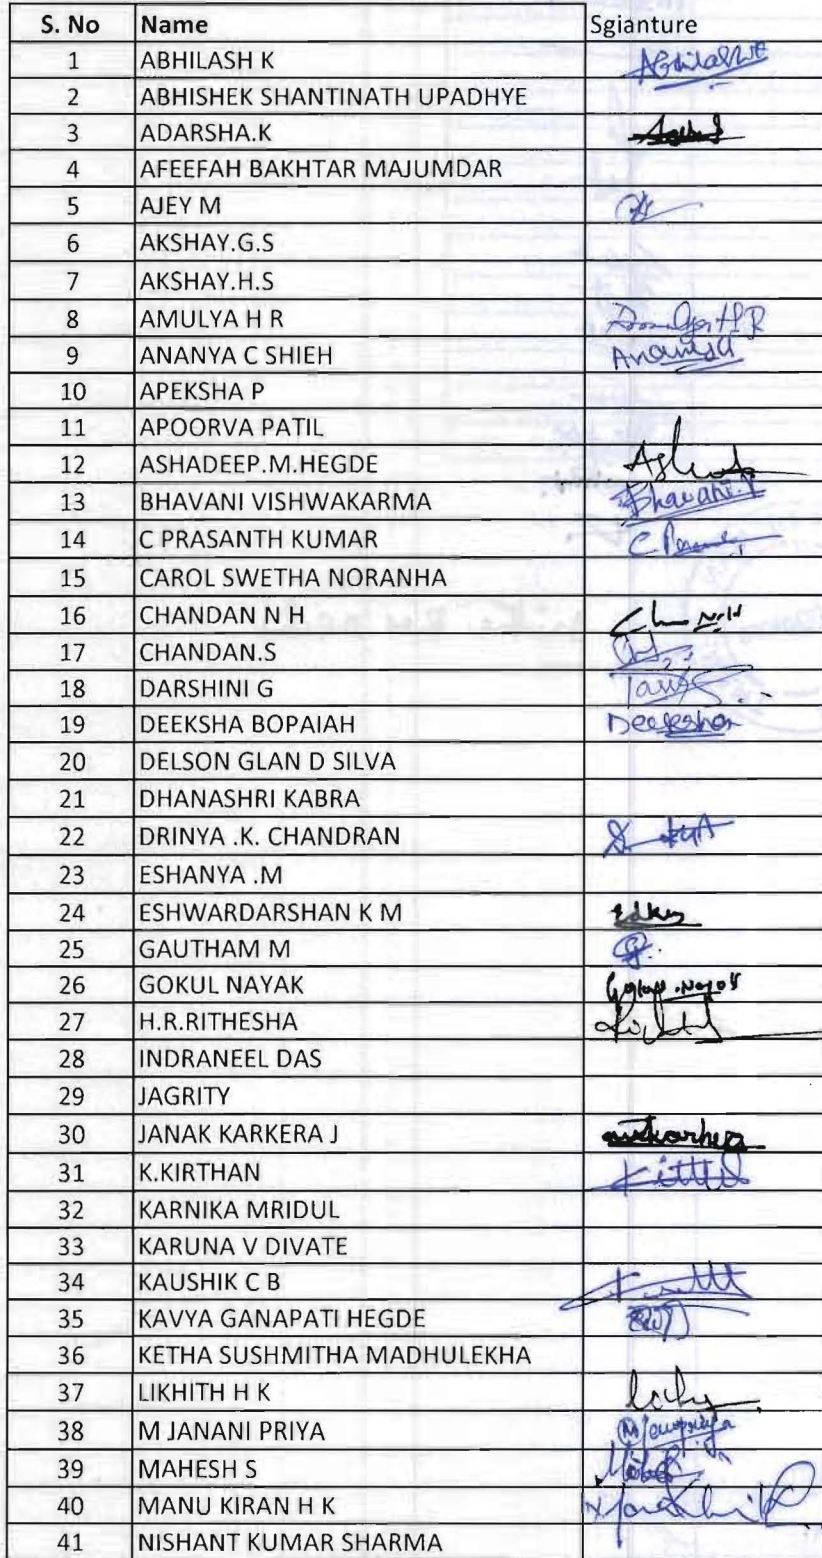 S. No Name Sgianture
1 ABHILASH K Abhilash
2 ABHISHEK SHANTINATH UPADHYE
3 ADARSHA.K
4 AFEEFAH BAKHTAR MAJUMDAR
5 AJEY M
6 AKSHAY.G.S
7 AKSHAY.H.S
8 AMULYA H R
9 ANANYA C SHIEH
10 APEKSHA P
11 APOORVA PATIL
12 ASHADEEP.M.HEGDE
13 BHAVANI VISHWAKARMA Bhavani.V
14 C PRASANTH KUMAR
15 CAROL SWETHA NORANHA
16 CHANDAN N H
17 CHANDAN.S
18 DARSHINI G
19 DEEKSHA BOPAIAH
20 DELSON GLAN D SILVA
21 DHANASHRI KABRA
22 DRINYA .K. CHANDRAN
23 ESHANYA .M
24 ESHWARDARSHAN K M
25 GAUTHAM M
26 GOKUL NAYAK
27 H.R.RITHESHA
28 INDRANEEL DAS
29 JAGRITY
30 JANAK KARKERA J
31 K.KIRTHAN
32 KARNIKA MRIDUL
33 KARUNA V DIVATE
34 KAUSHIK C B
35 KAVYA GANAPATI HEGDE
36 KETHA SUSHMITHA MADHULEKHA
37 LIKHITH H K
38 M JANANI PRIYA
39 MAHESH S
40 MANU KIRAN H K
41 NISHANT KUMAR SHARMA